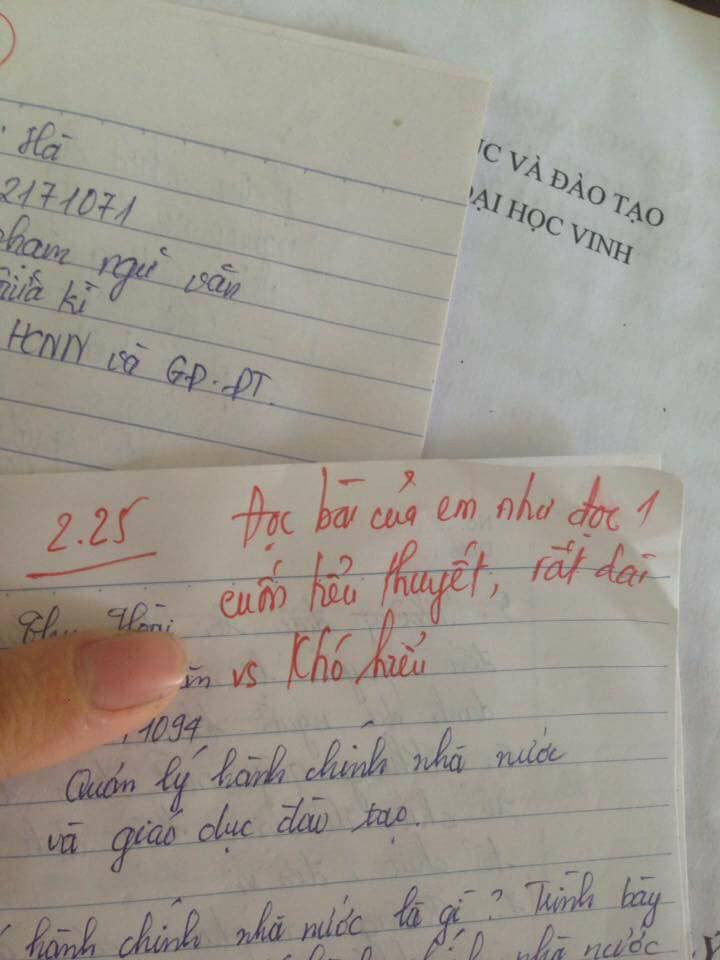 Hà
2171071
phạm ngữ văn
giữa kì
HCNN và GD-ĐT.
ỤC VÀ ĐÀO TẠO
ĐẠI HỌC VINH
2.25
Đọc bài của em như đọc 1
cuốn tiểu thuyết, rất dài
vs Khó hiểu
Hoài
1094
Quản lý hành chính nhà nước
và giáo dục đào tạo.
hành chính nhà nước là gì? Trình bày
nhà nước